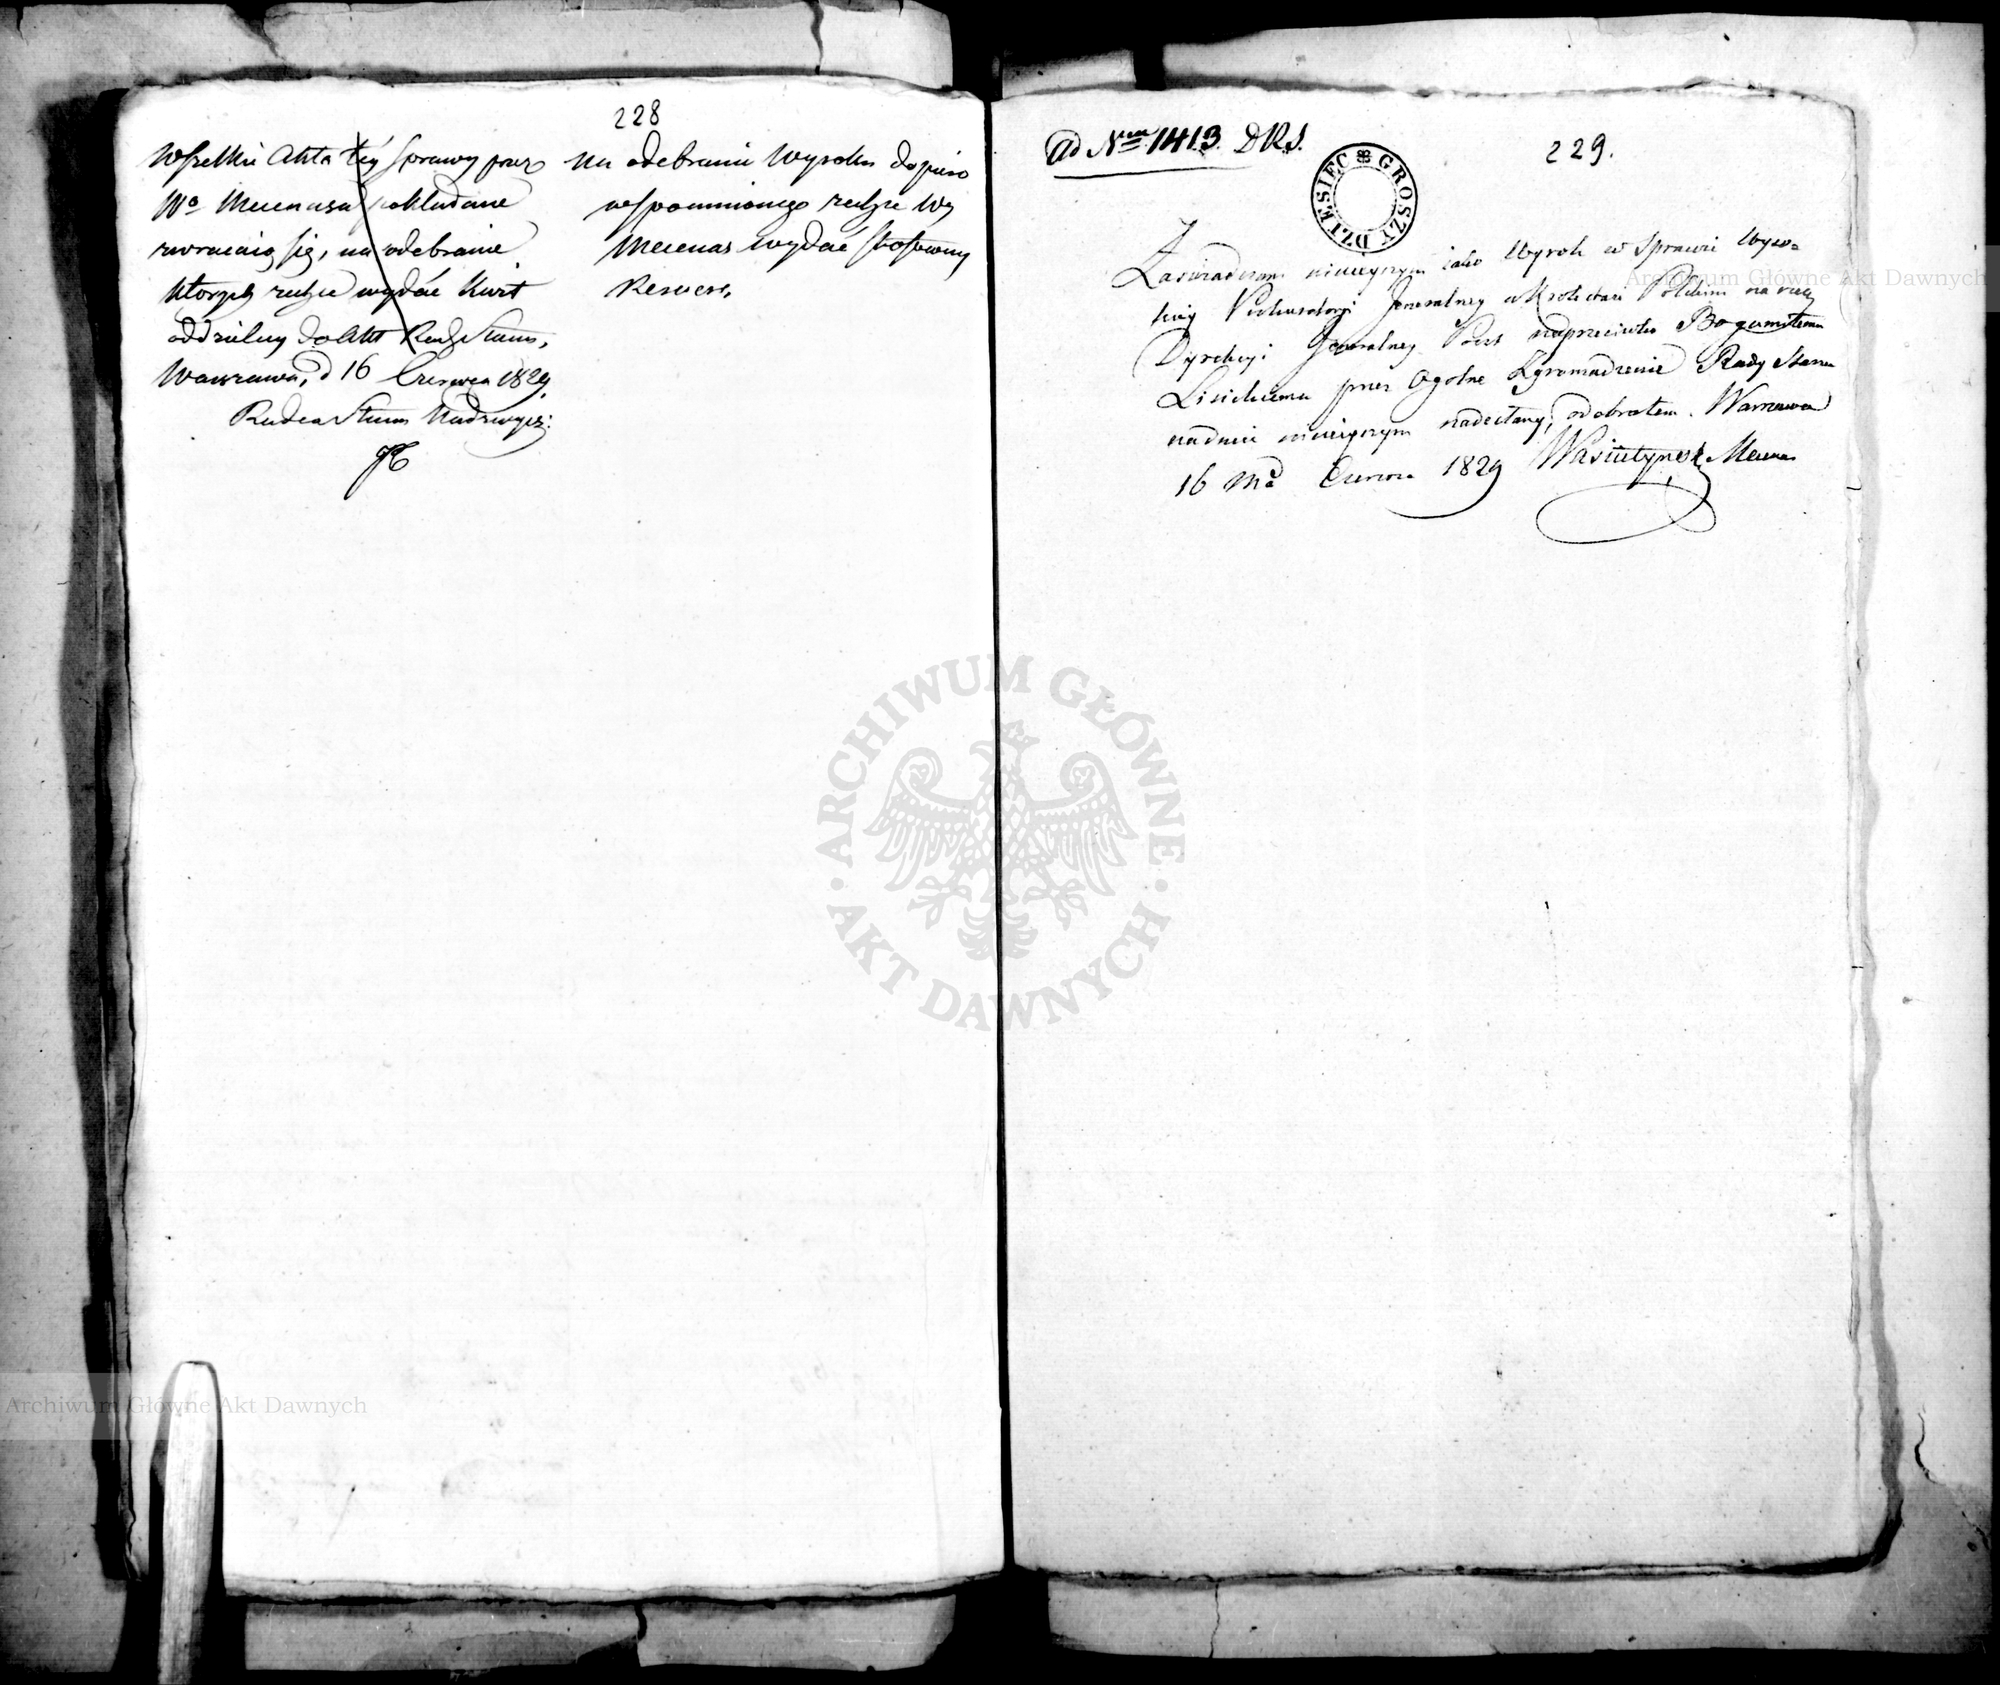 228
Wszelkie Akta téy sprawy przez
Wo Mecenasa pokładane
zwracaią się, na odebranie
których zechce wydać Kwit
oddzielny do Akt Rady Stanu,
Warszawa, d 16 Czerwca 1829
Radca Stanu Nadzwycz:
na odebranie Wyroku dopiero
wspomnionego zechce Wy
Mecenas wydać stosowny
Rewers,
ad Num 1413. DRS.
229.
DZIESIĘĆ GROSZY
Zaświadczam ninieyszym iako Wyrok w Sprawie Wyso=
kiey Prokuratorji Jeneralney w Królestwie Polskim na rzecz
Dyrekcyi Jeneralney Poczt naprzeciwko Bogumiłowi
Lisickiemu przez Ogólne Zgromadzenie Rady Stanu
na dniu ninieyszym nadesłany, odebrałem. Warszawa
16 Ma Czerwca 1829 Wasiutyński Mecenas
ARCHIWUM GŁÓWNE
AKT DAWNYCH
Archiwum Główne Akt Dawnych
Archiwum Główne Akt Dawnych